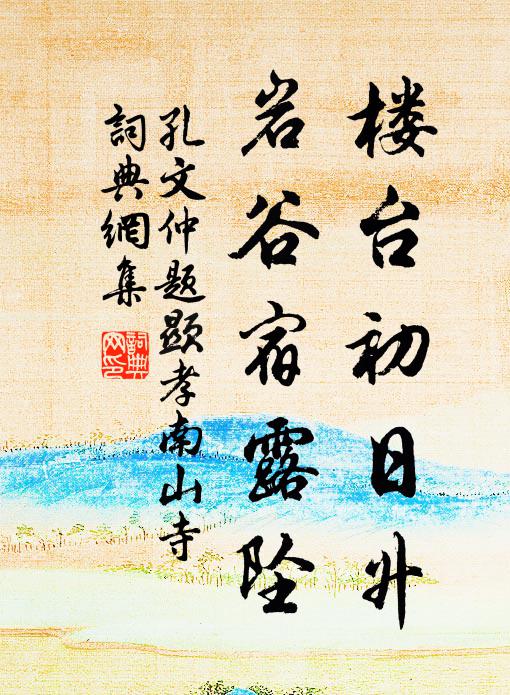 楼台初日升
岩谷宿露坠
孔文仲题顯孝南山寺
詞典網集
詞典
网印